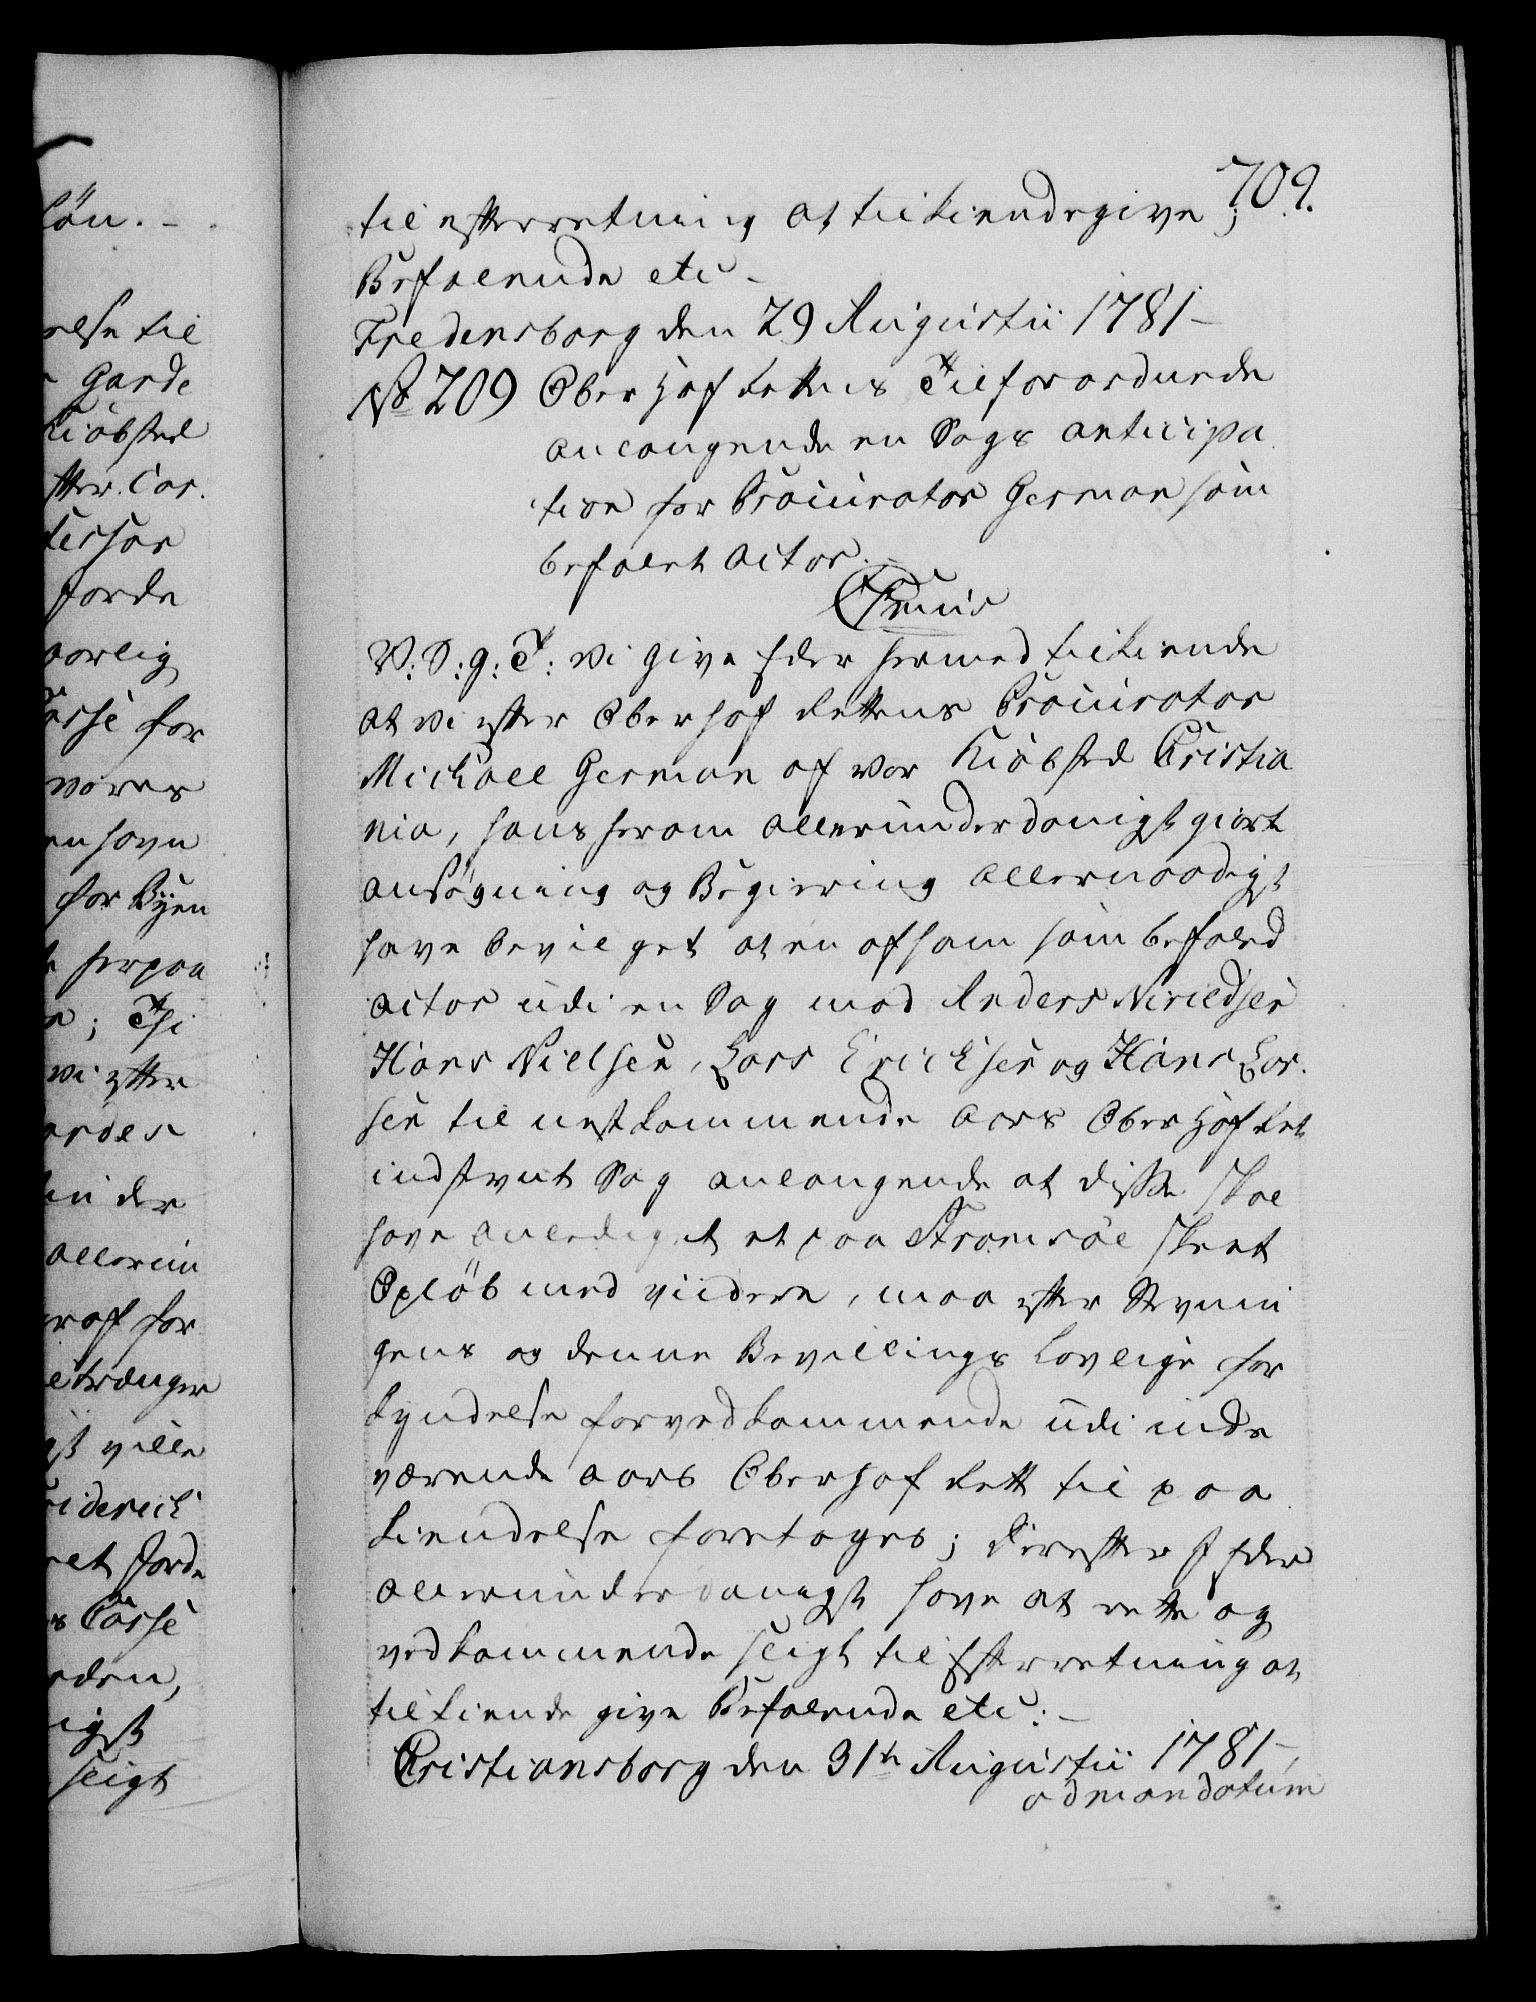 709.
til efterretning at tilkiendegive;
Befalende etc -
Fredensborg den 29 Augustii 1781 -
No 209 Ober Hof Rettens Tilforordnede
anlangende en Sags anticipa
tion for Procurator German som
befalet Actor. -
V: S: g: T: Vi give Eder hermed tilkiende
at vi efter Oberhof Rettens Procurator
Michael German af vor Kiöbsted Cristia
nia, hans herom allerunderdanigst giort
ansögning og Begiering allernaadigst
have bevilget at en af ham som befaled
actor udi en Sag mod Anders Nirildsen
Hans Nielsen, Lars Ericksen og Hans Lar
sen til nestkommende Aars Ober Hof Ret
indstevnt Sag anlangende at disse skal
have anlediget et paa Stromsöe skeet
Oplöb med viidere, maa efter Stevnin
gens og denne Bevillings lovlige for
kyndelse for vedkommende udi inde
værende aars Oberhof Rett til paa
kiendelse foretages; Derefter I Eder
allerunderdanigst have at rette og
vedkommende sligt til Efterretning at
tilkiende give Befalende etc: -
Cristiansborg den 31te Augustii 1781 -
ad mandatum